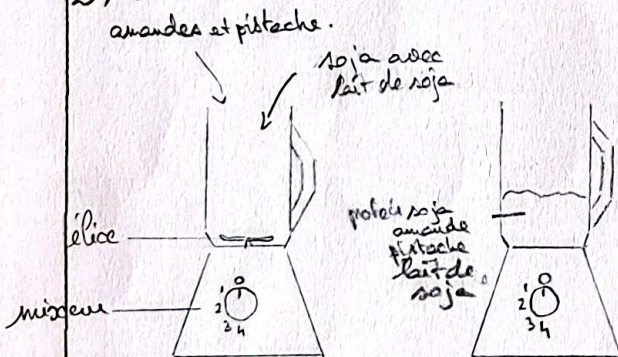 amandes et pistache.
soja avec
lait de soja
élice
mixeur
0
1
2
3 4
soja
amande
pistache
lait de
soja
0
1
2
3 4